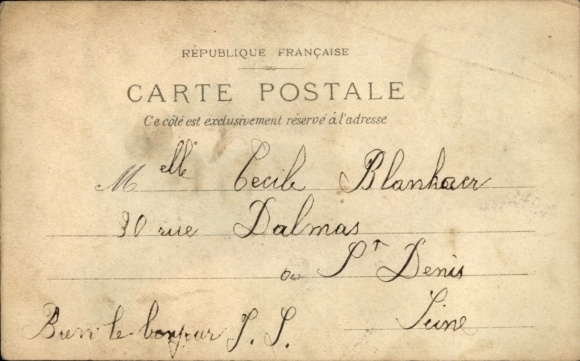 RÉPUBLIQUE FRANÇAISE
CARTE POSTALE
Ce côté est exclusivement réservé à l'adresse
Melle Cecile Blanhaer
rue Dalmas
St Denis
Seine
Bien le bonjour J. J.